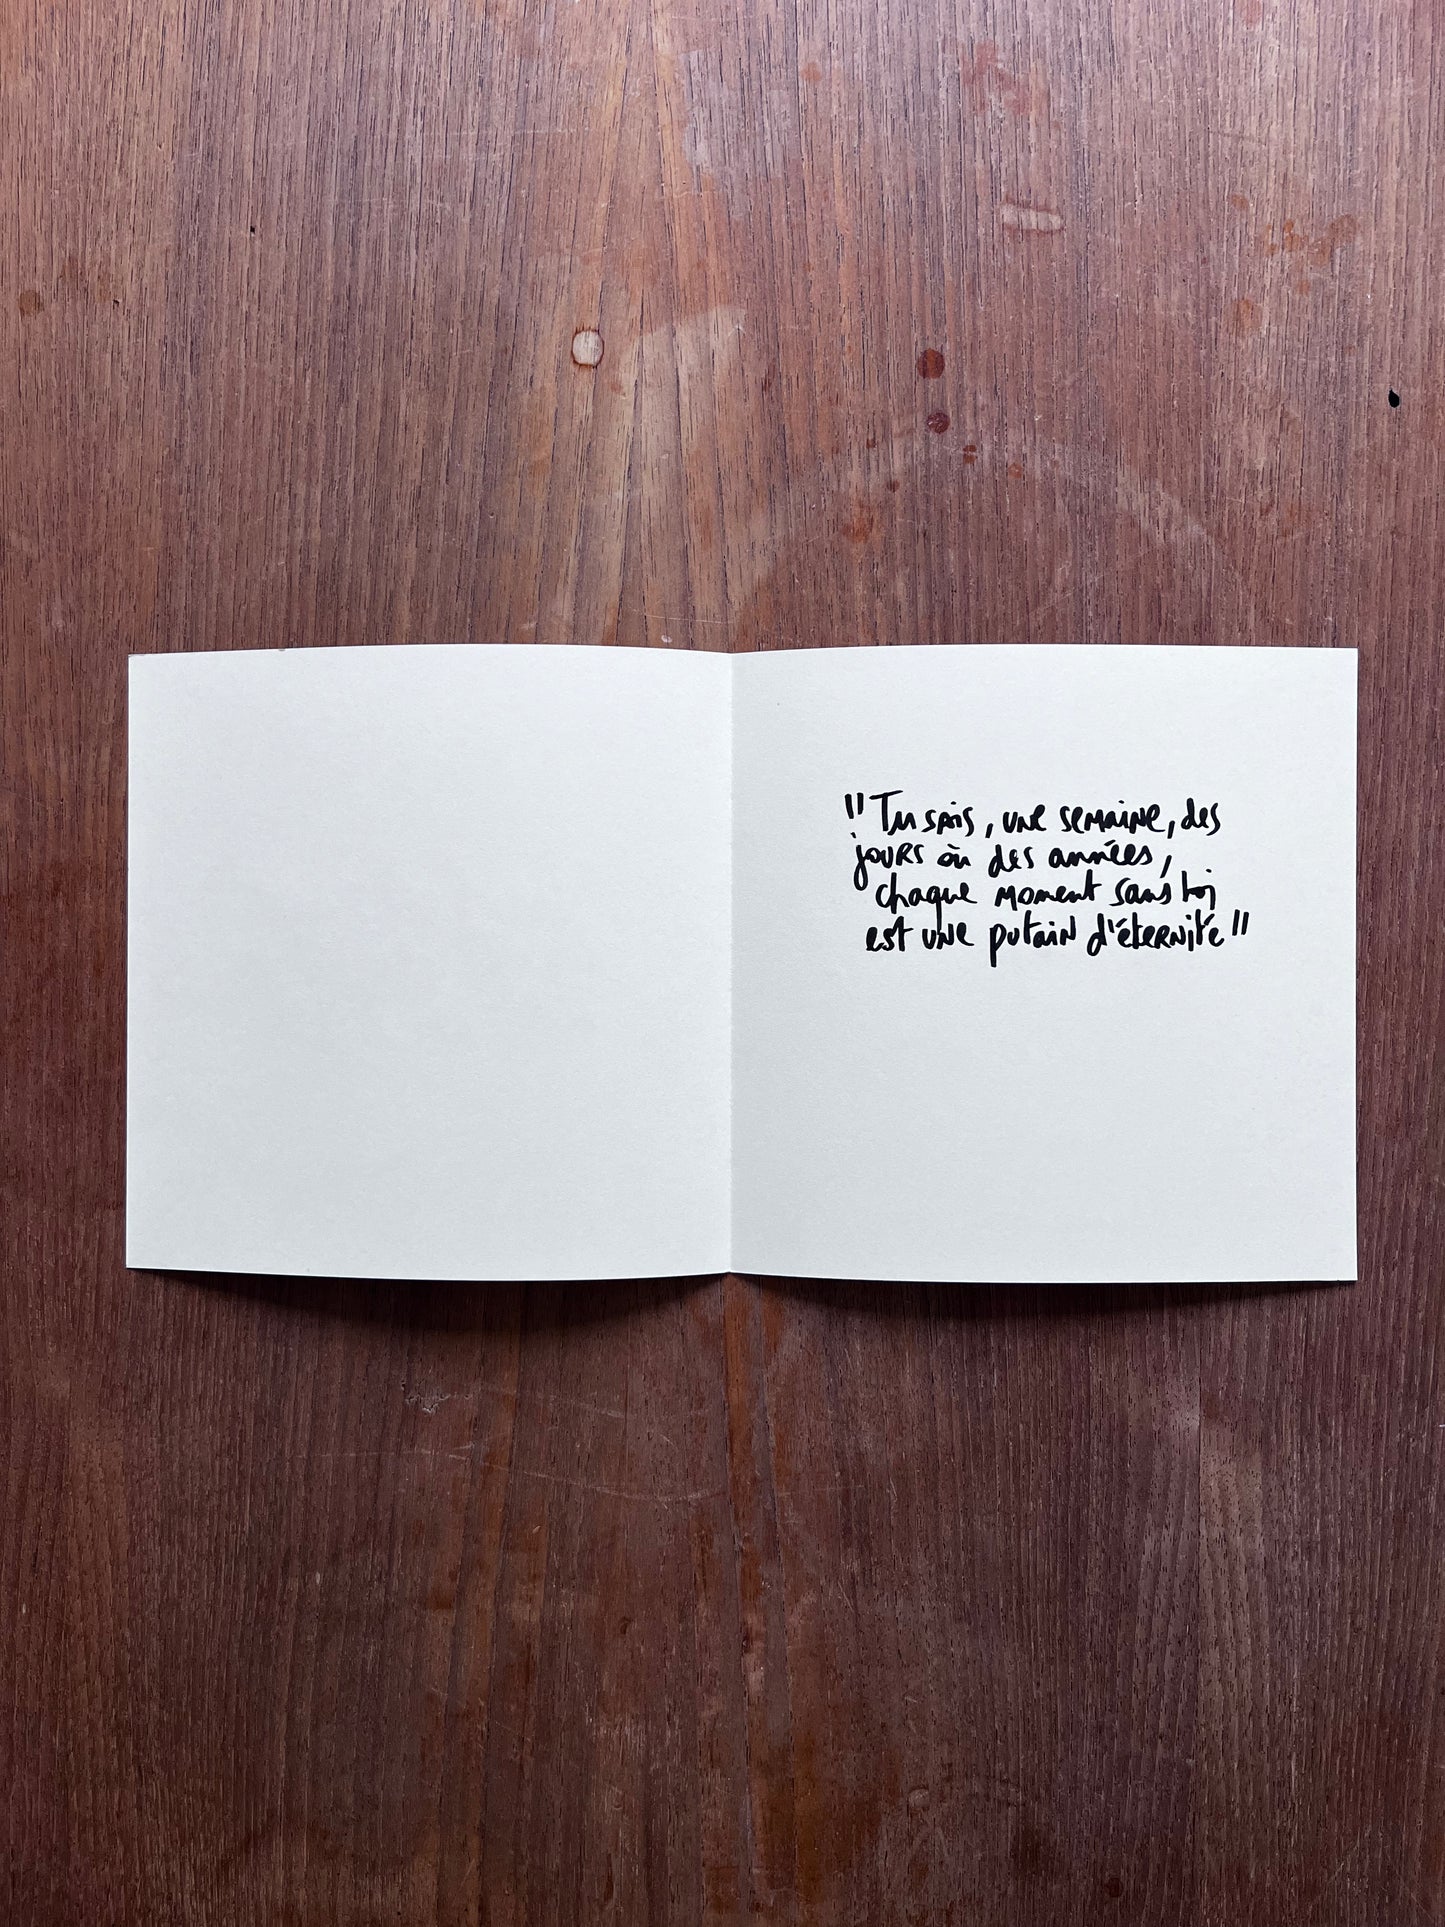 "Tu sais, une semaine, des
jours ou des années,
chaque moment sans toi
est une putain d'éternité"